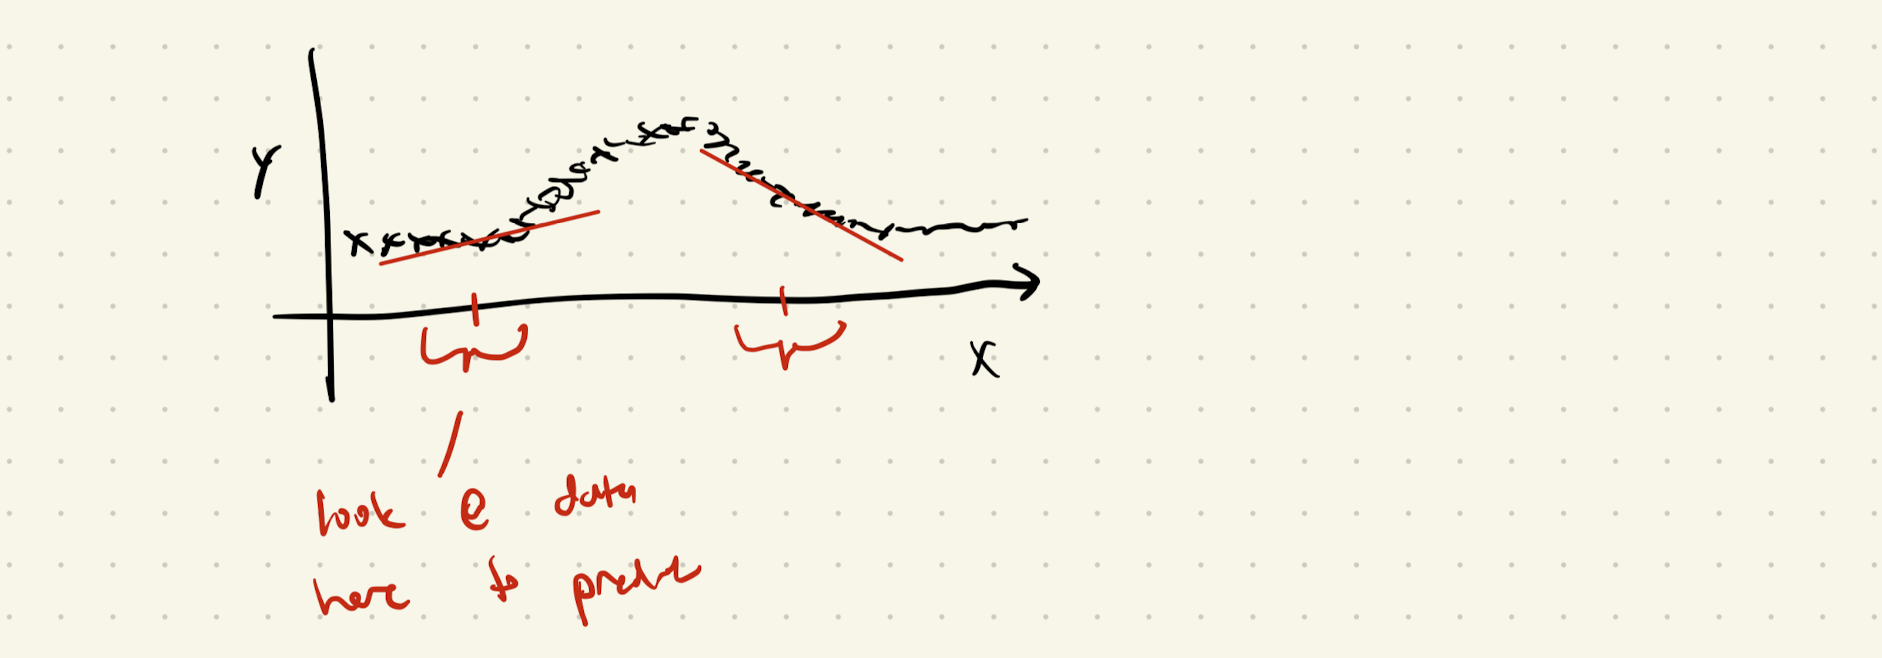 Y
X
look @ data
here to predict